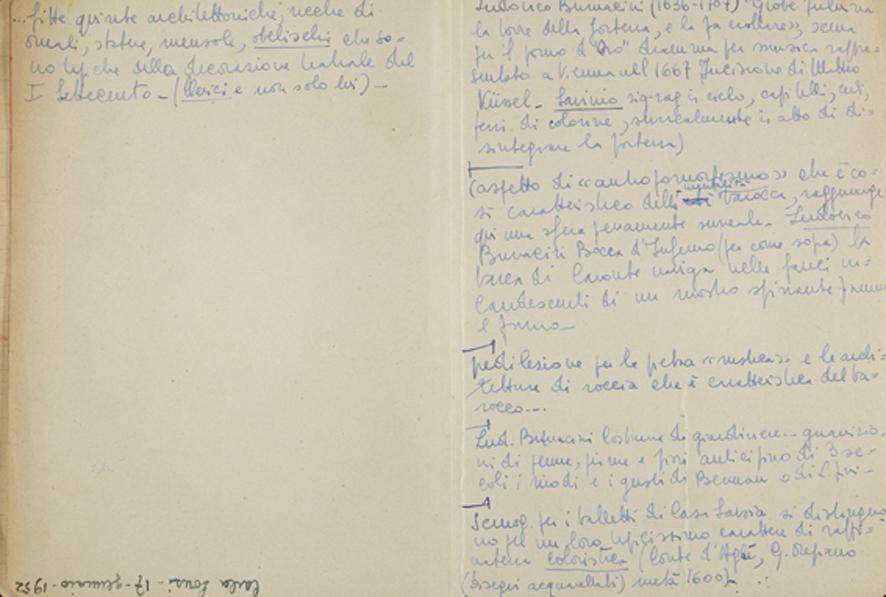 ...fitte quinte architettoniche, ricche di
ornati, statue, mensole, obelischi che so=
no tipiche della decorazione teatrale del
I Settecento - ( e non solo lui) -
Carla Lonzi - 17 - gennaio - 1952
Ludovico Burnacini (1636-1707) "Giove fulmina
la torre della fortezza, e la fa crollare", scena
per il "pomo d'Oro" dramma per musica rappre=
sentato a Vienna nell 1667 Incisione di Matteo
Küsel - zig-zag in cielo, capitelli,
di colonne, surrealmente in alto di di=
sintegrare la fortezza)
(aspetto di «antropomorfismo» che è co=
sì caratteristico della barocca, raggiunge
qui una sfera pienamente surreale - Ludovico
Burnacini Bocca d'Inferno (per come sopra) la
barca di Caronte naviga nelle fauci in=
candescenti di un mostro spirante fiamme
e fumo -
predilezione per la pietra «rustica» e le archi=
tetture di roccia che è caratteristica del ba=
rocco...
Lud. Burnacini Costume di giardiniere - guarnizio
ni di penne, piume e fiori anticipino di 3 se=
coli i modi e i gusti di Berman o di L.
Scenog. per i balletti di Casa Savoia si distinguo
no per un loro tipicissimo carattere di raffi=
natezza coloristica (Conte d'Agliè, G.
(disegni acquarellati) metà 1600)